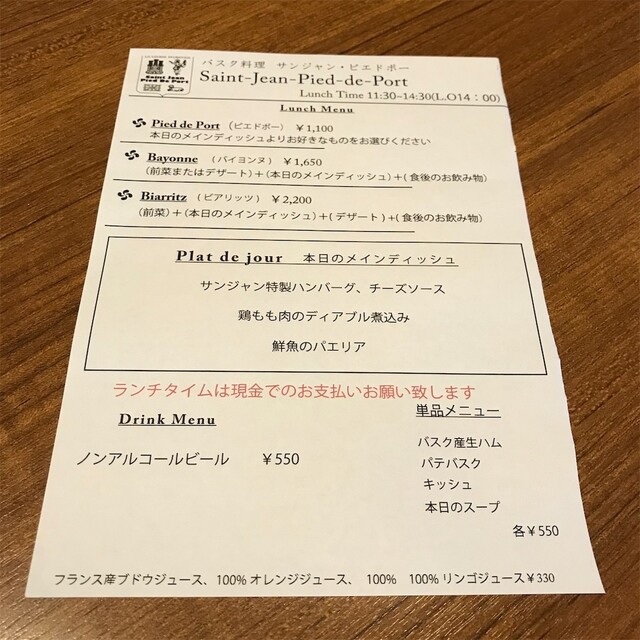 Saint Jean
Pied De Port
バスク料理 サンジャン・ピエドポー
Saint-Jean-Pied-de-Port
Lunch Time 11:30-14:30(L.O14:00)
Lunch Menu
Pied de Port (ピエドポー) ¥1,100
本日のメインディッシュよりお好きなものをお選びください
Bayonne (バイヨンヌ) ¥1,650
(前菜またはデザート)+(本日のメインディッシュ)+(食後のお飲み物)
Biarritz (ビアリッツ) ¥2,200
(前菜)+(本日のメインディッシュ)+(デザート)+(食後のお飲み物)
Plat de jour 本日のメインディッシュ
サンジャン特製ハンバーグ、チーズソース
鶏もも肉のディアブル煮込み
鮮魚のパエリア
ランチタイムは現金でのお支払いお願い致します
Drink Menu
ノンアルコールビール ¥550
単品メニュー
バスク産生ハム
パテバスク
キッシュ
本日のスープ
各¥550
フランス産ブドウジュース、100%オレンジジュース、 100% 100%リンゴジュース¥330